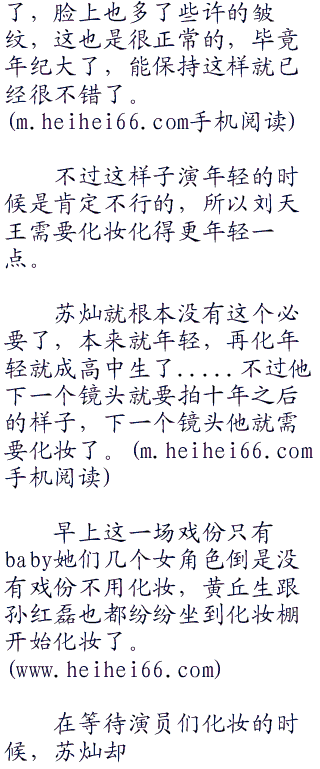 了，脸上也多了些许的皱
纹，这也是很正常的，毕竟
年纪大了，能保持这样就已
经很不错了。
(m.heihei66.com手机阅读)
不过这样子演年轻的时
候是肯定不行的，所以刘天
王需要化妆化得更年轻一
点。
苏灿就根本没有这个必
要了，本来就年轻，再化年
轻就成高中生了.....不过他
下一个镜头就要拍十年之后
的样子，下一个镜头他就需
要化妆了。(m.heihei66.com
手机阅读)
早上这一场戏份只有
baby她们几个女角色倒是没
有戏份不用化妆，黄丘生跟
孙红磊也都纷纷坐到化妆棚
开始化妆了。
(www.heihei66.com)
在等待演员们化妆的时
候，苏灿却